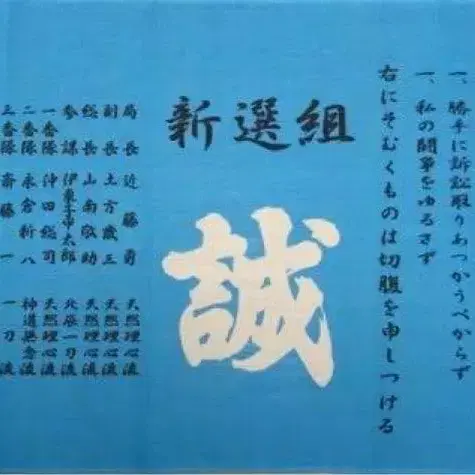 一、勝手に訴訟取りあつかうべからず
一、私の闘争をゆるさず
右にそむくものは切腹を申しつける
新選組
誠
局長 近藤勇 天然理心流
副長 土方歳三 天然理心流
総長 山南敬助 天然理心流
参謀 伊東甲子太郎 北辰一刀流
一番隊 沖田総司 天然理心流
二番隊 永倉新八 神道無念流
三番隊 斎藤一 一刀流